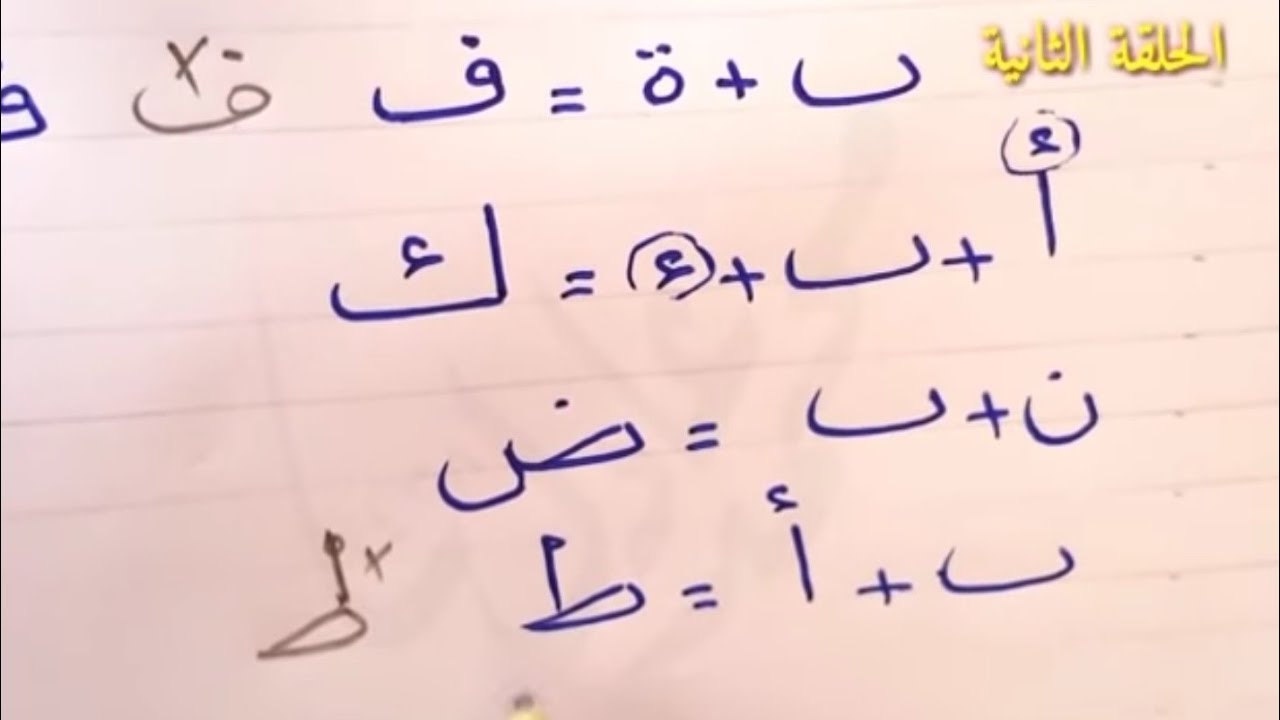 الحلقة الثانية
ٮ + ة = ف ف × ف
أ + ٮ + ء = ك
ن + ٮ = ض
ٮ + أ = ط ط ×